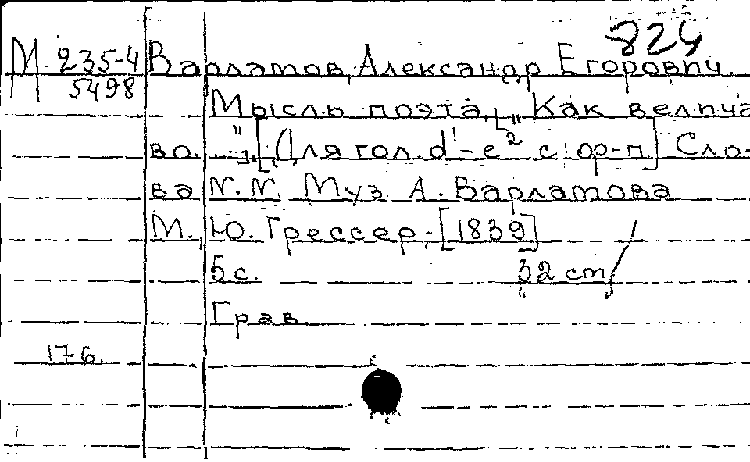 824
М 235-4
5498
Варламов, Александр Егорович
Мысль поэта. [„Как велича
во..."]. [Для гол. d'-e² с ор-п] Сло-
ва N. N. Муз. А. Варламова
М., Ю. Грессер. [1839]
5 с. 32 cm
Грав.
176.